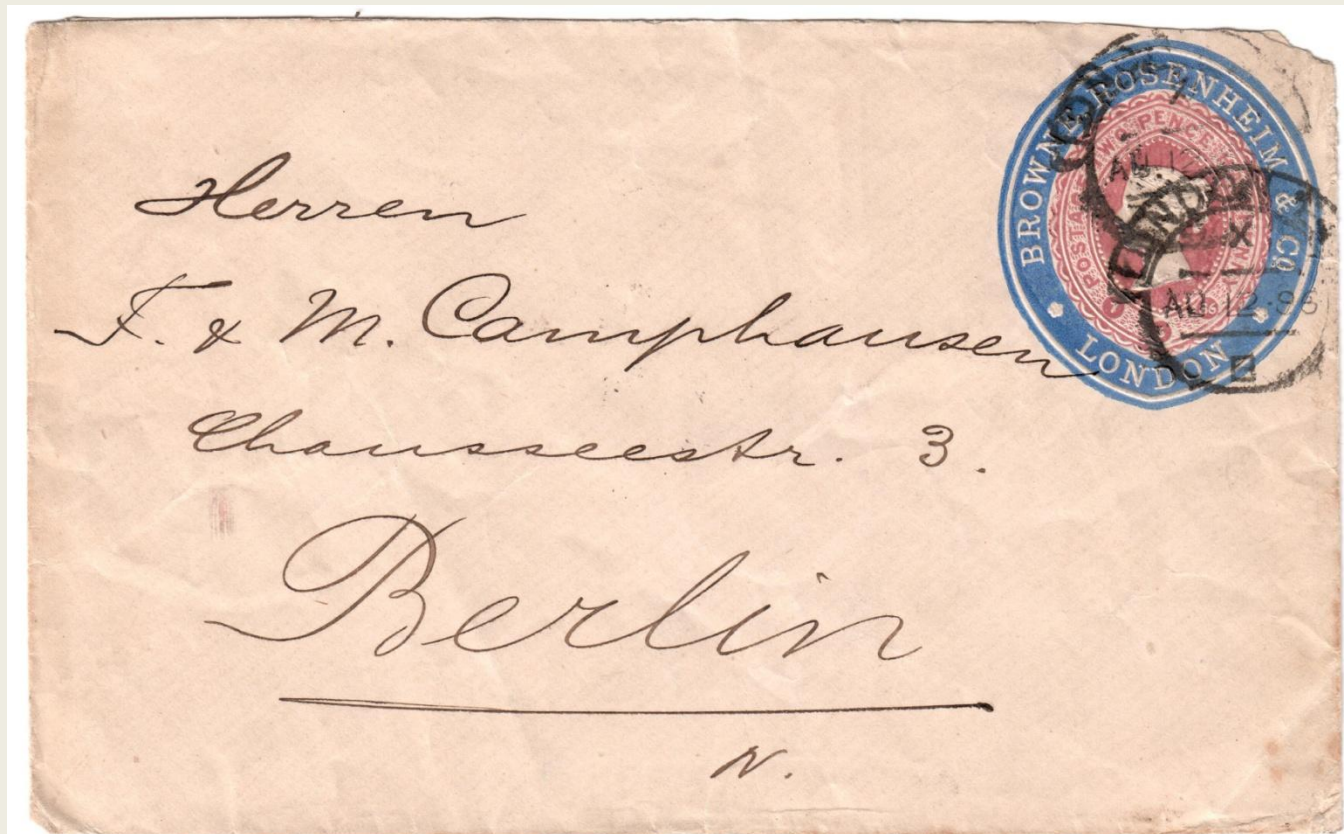 Herren
F. & M. Camphausen
Chausseestr. 3.
Berlin
N.
BROWNE, ROSENHEIM & Co.
LONDON
POSTAGE TWO PENCE
X
AU 12 96